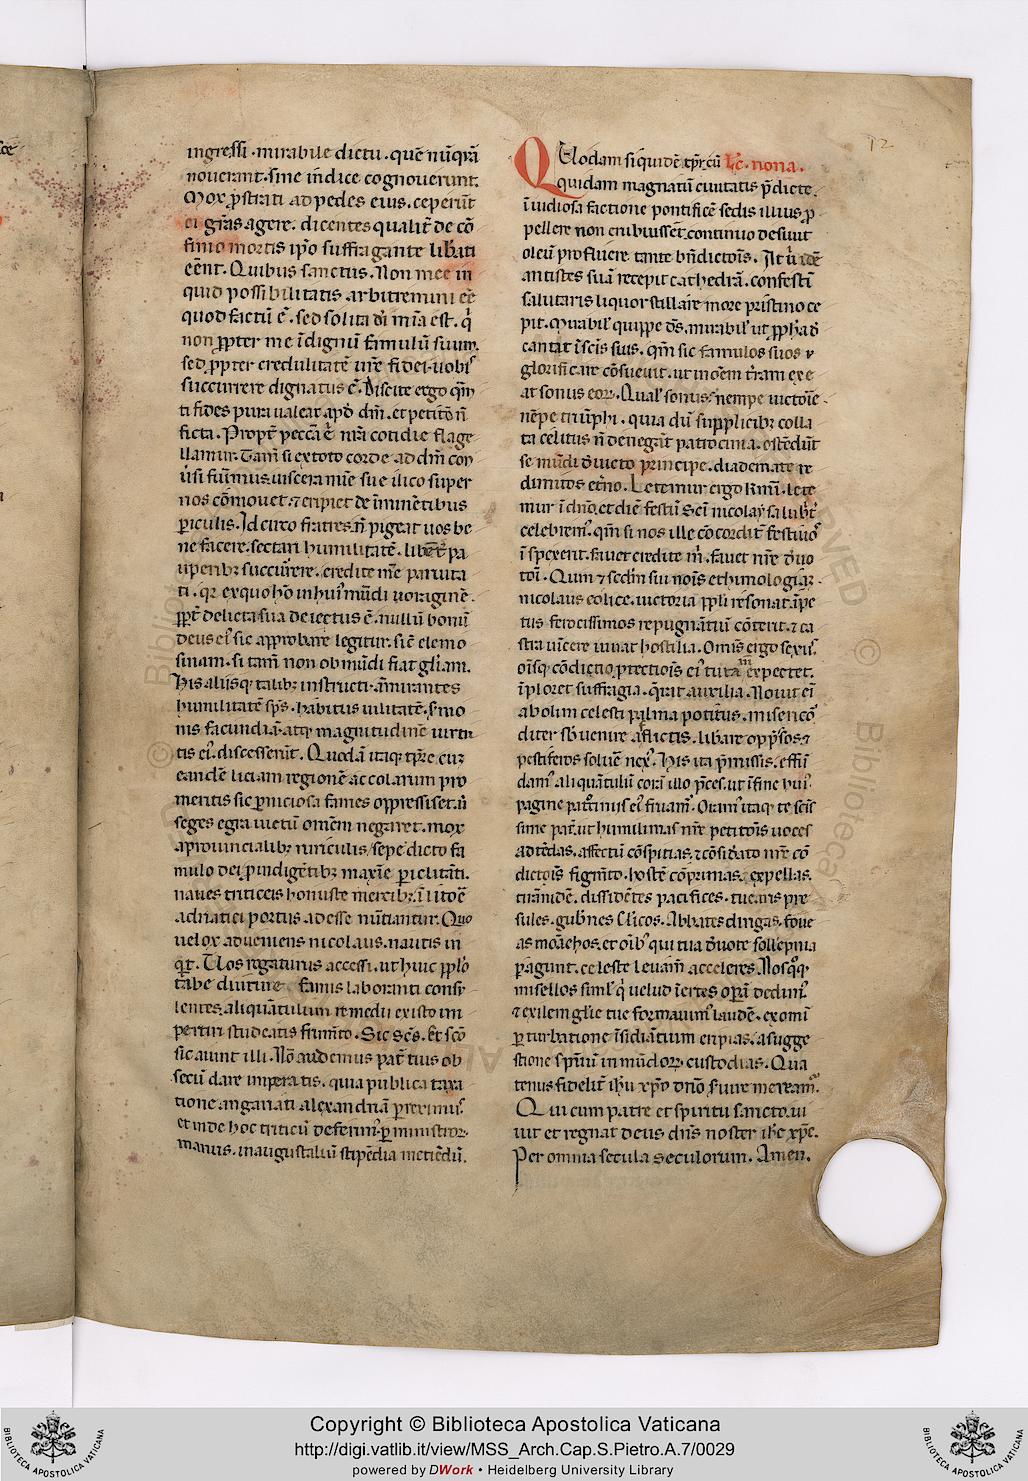 ingressi · mirabile dictu · quē nūq̄rā
noverant · sine indice cognoverunt.
Mox p̄strati ad pedes eius. ceperūt
ei gr̄as agere. dicentes qualit̄ de cō
finio mortis ip̄o suffragante lib̄ati
eēnt. Quibus sanctus. Non mee in
quid possibilitatis arbitremini eē
quod factū ē. sed solita dī mīa est. q̄
non p̄pter me īdignū famulū suum.
sed p̄pter credulitatē vr̄e fidei · vobis
succurrere dignatus ē. Discite ergo q̄m
ti fides pura valeat apd̄ dm̄. et petitō n̄
ficta. Propt̄ pecc̄a ē nr̄a cotidie flage
llamur. Tam̄ si ex toto corde ad dm̄ con
v̄si fuīmus. viscera mīe sue ilico super
nos cōmovet. ⁊ eripiet de īminētibus
p̄iculis. Id circo fratres. n̄ pigeat vos be
ne facere. sectari humilitatē. libēt̄ pa
up̄erib; succurrere. credite
ti. q̄ ex quo hō in hui' mūdi voragine
pp̄t̄ delicta sua deiectus ē. nullū bonū
deus ei' sic approbare legitur. sic̄ elemo
sinam. si tam̄ non ob mūdi fiat gl̄iam.
His aliisq; talib; instructi. āmirantes
humilitatē sp̄s. habitus vilitatē. s̄mo
nis facundiā. atq; magnitudinē virtu
tis ei'. discesserūt. Quodā itaq; tp̄re. cū
eandē liciam regionē accolarum pro
meritis sic p̄niciosa fames opp̄ssisset. ū
seges egra victū om̄em negaret. mox
a provincialib; nūculis / sepe dicto fa
mulo dei p̄indigētib; maxīe p̄iclitāti.
naves triticeis honuste mercib; ī litoē
adriatici portus adesse nūtiantur. Quo
velox adveniens nicolaus. nautis in
q̄t. Vos rogaturus accessi. ut huic pp̄lo
tabe diutine famis laboranti consu
lentes. aliquātulum remedii ex isto im
pertiri studeatis frum̄to. Sic scēs. Et scō
sic aiunt illi. Nō audemus pat̄ tius ob
secū dare imperatis. quia publica taxa
tione angariati alexandriā p̄reximus.
et inde hoc triticū deferim'. p̄ ministror̄
manus. in augustaliū stipēdia metiēdū.
12
Quodam siquidē tp̄r. cū Lc̄. nona.
quidam magnatū civitatis p̄dicte.
īvidiosa factione pontificē sedis illius p̄
pellere non erubuissēt. continuo desivit
oleū profluere. tante bn̄dictoīs. At ū idē
antistes suā recepit cathedrā. confestī
salutaris liquor stillare more pristino ce
pit. Mirabil' quippe dēs. mirabil' ut pp̄ha
cantat ī scīs suis. q̄m sic famulos suos
glorificare cōsuevit. ut in om̄em t̄ram exe
at sonus eor̄. Qual' sonus: nempe victoīe
nēpe triūphi. quia dū supplicib; colla
ta celitus n̄ denegāt patrocinia. ostēdūt
se mūdi devicto principe. diademate re
dimitos et̄no. Letemur ergo kmī. lete
mur ī dn̄o. et die festū scī nicolay salubr̄
celebrem'. q̄m si nos ille cōcordit̄ festivo
īspexerit. favet credite m̄. favet nr̄e devo
toī. Quin ⁊ sedm̄ sui noīs ethimologiā.
nicolaus eolice. victoriā pp̄li resonat. īpe
tus ferocissimos repugnātiū cōterit. ⁊ ca
stra vincere iuvat hostilia. Omīs ergo sexus.
oīsq; cōdictio. p̄tectiōis ei' tutam̄ expectet.
īploret suffragia. q̄rat auxilia. Novit eī
ab olim celesti palma potitus. misericō
diter sb̄venire afflictis. libare opp̄sos. ⁊
pestiferos solvē nex'. His ita p̄missis. effū
dam' aliquātulū corā illo p̄ces. ut ī fine hui'
pagine patrimus ei' fruam'. Oram' itaq; te scīs
sime pat̄. ut humilimas nr̄e petitoīs voces
adtēdas. affectū cōspicias. ⁊ cōsid̄ato nr̄e cō
dictoīs figm̄to. hostē cōprimas. expellas.
tirānidē. dissidētes pacifices. tuearis pre
sules. gub̄nes cl̄icos. Abbates dirigas. fove
as monāchos. et oīb' qui tua devote sollepnia
peragunt. celeste levam̄ acceleres. Nosq; q̄
misellos simul q̄ velud īertes op̄am dedim'
⁊ exilem gl̄ie tue formavim' laudē. ex omī
p̄turbatione īsidiātium eripias. a sugge
stione sp̄rituū in mūdor̄. custodias. Qua
tenus fidelit̄ ihū xp̄o dn̄o s̄vire mereamr̄.
Qui cum patre et spiritu sancto. vi
vit et regnat deus dn̄s noster ihc̄ xp̄c.
Per omnia secula seculorum. Amen.
Copyright © Biblioteca Apostolica Vaticana
http://digi.vatlib.it/view/MSS_Arch.Cap.S.Pietro.A.7/0029
powered by DWork • Heidelberg University Library